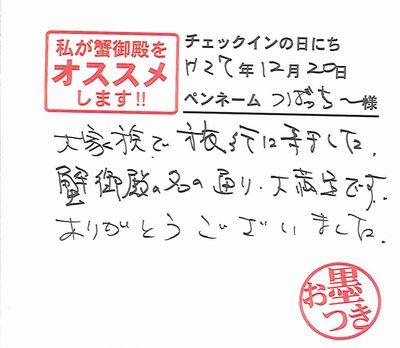 私が蟹御殿を
オススメ
します!!
チェックインの日にち
H27年12月20日
ペンネーム つぼっち〜様
大家族で旅行に来ました。
蟹御殿の名の通り、大満足です。
ありがとうございました。
お墨つき